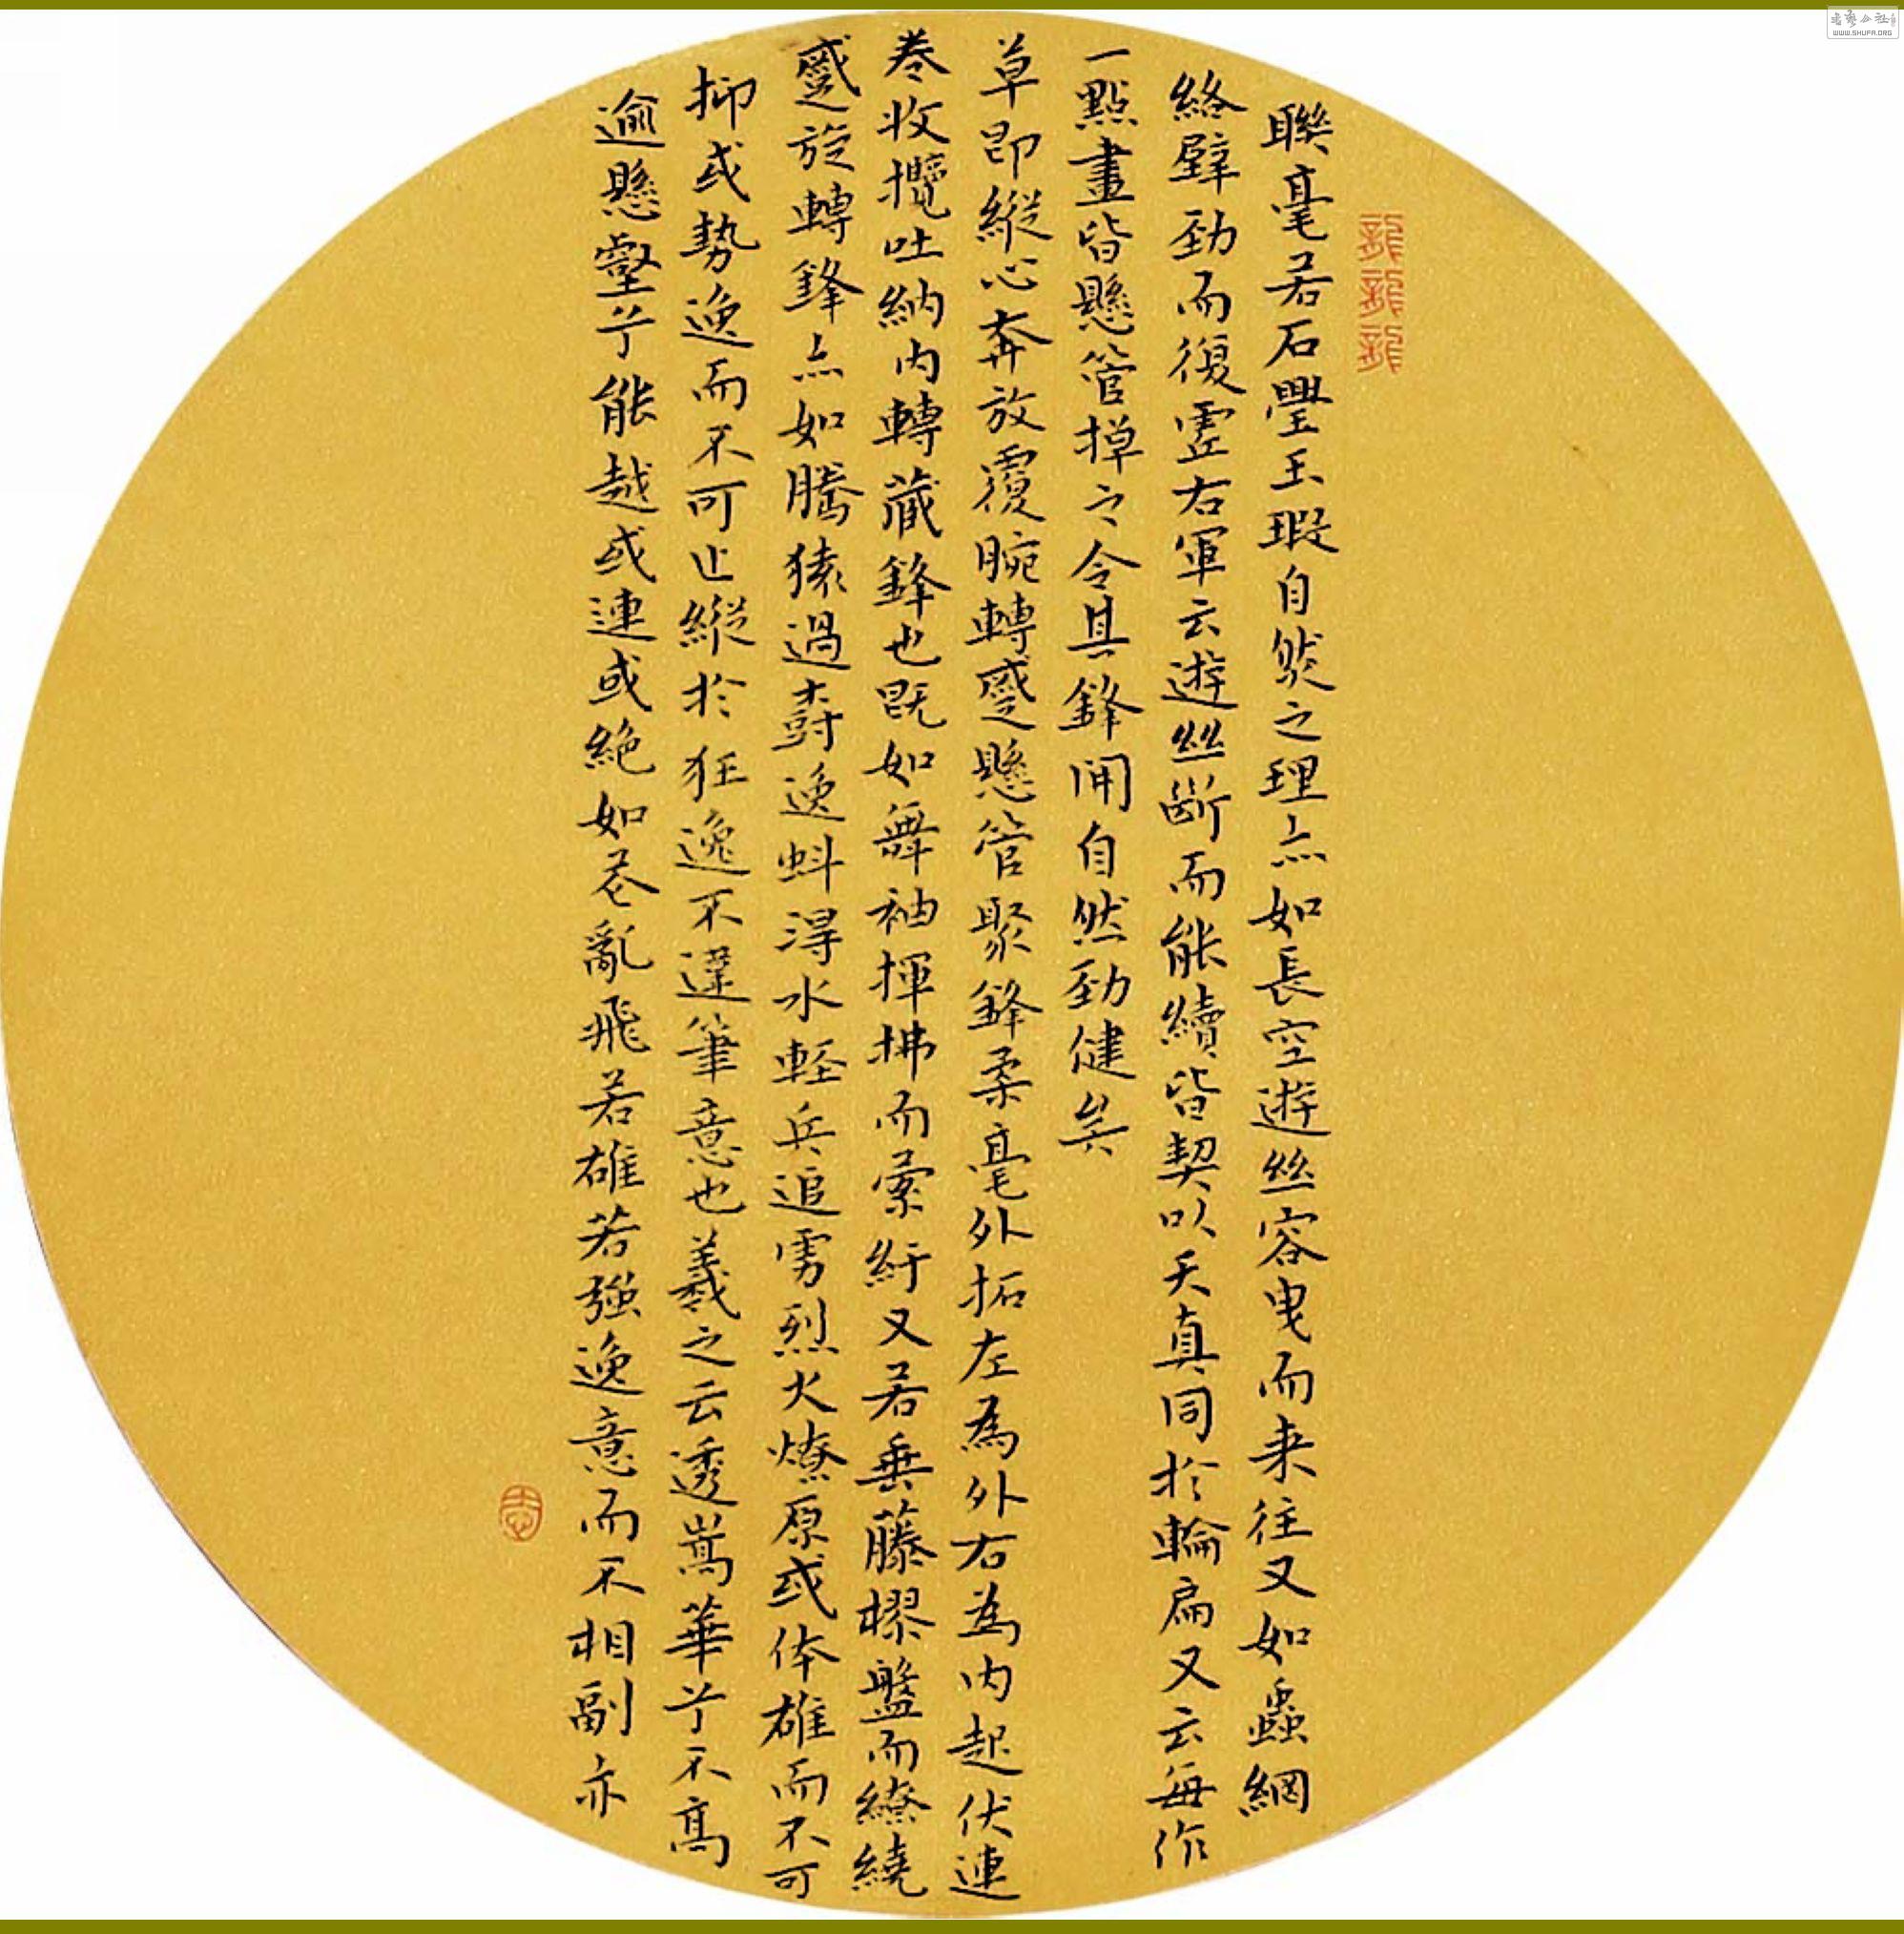 聯毫若石璺玉瑕自然之理亦如長空遊絲容曳而来往又如蟲網
絡壁勁而復虛右軍云遊絲斷而能續皆契以天真同於輪扁又云每作
一點畫皆懸管掉之令其鋒開自然勁健矣
草即縱心奔放覆腕轉蹙懸管聚鋒柔毫外拓左為外右為内起伏連
卷收攬吐納内轉藏鋒也既如舞袖揮拂而縈紆又若垂藤樛盤而繚繞
蹙旋轉鋒亦如騰猿過樹逸蚪得水軽兵追虜烈火燎原或体雄而不可
抑或勢逸而不可止縱於狂逸不違筆意也羲之云透嵩華兮不高
逾懸壑兮能越或連或絶如花亂飛若雄若強逸意而不相副亦
書法公社
WWW.SHUFA.ORG